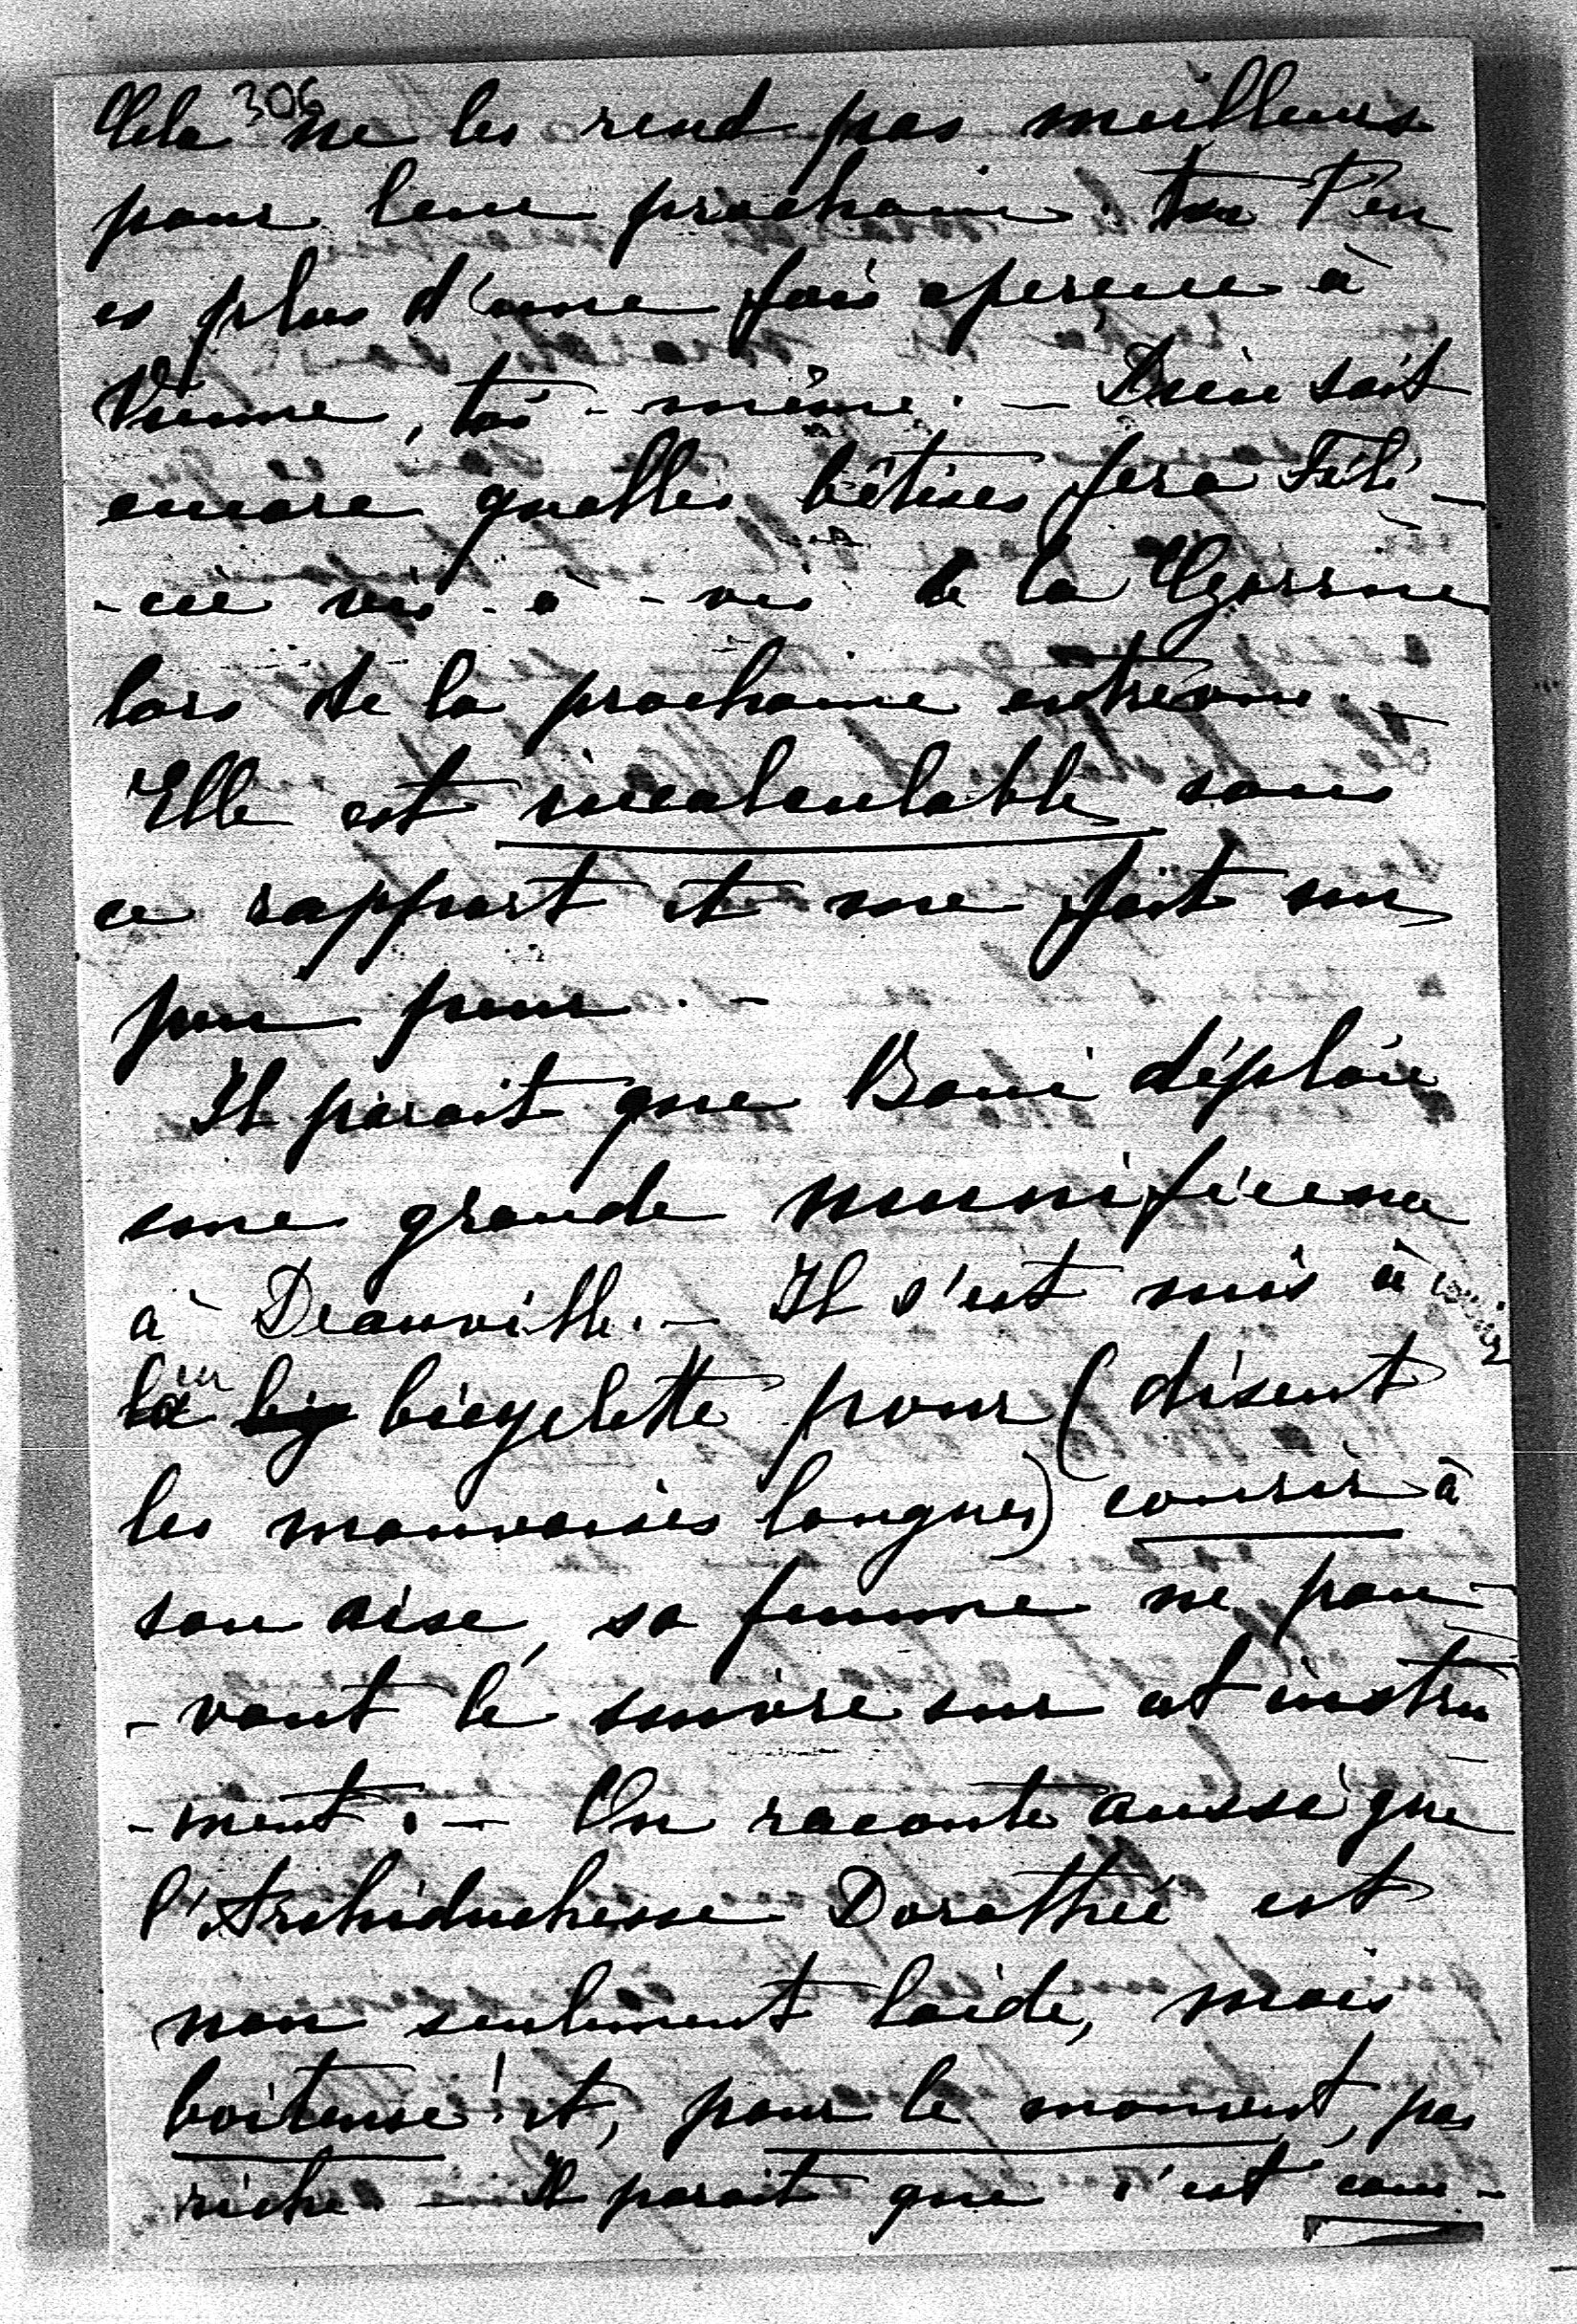 306
Cela ne les rend pas meilleurs
pour leur prochain. tu t'en
es plus d'une fois aperçue à
Vienne, toi-même. — Dieu sait
encore quelles bêtises fera Féli-
-cie vis-à-vis de la Czarine
lors de la prochaine entrevue. —
Elle est incalculable sous
ce rapport et me fait un
peu peur. —
Il parait que Boni déploie
une grande munificence
à Deauville. — Il s'est mis à courir
la en bicyclette pour (disent
les mauvaises langues) courir à
son aise, sa femme ne pou-
-vant le suivre sur cet instru-
-ment. — On raconte aussi que
l'Archiduchesse Dorothée est
non seulement laide, mais
boiteuse! et, pour le moment, pas
riche. — Il parait que c'est com-